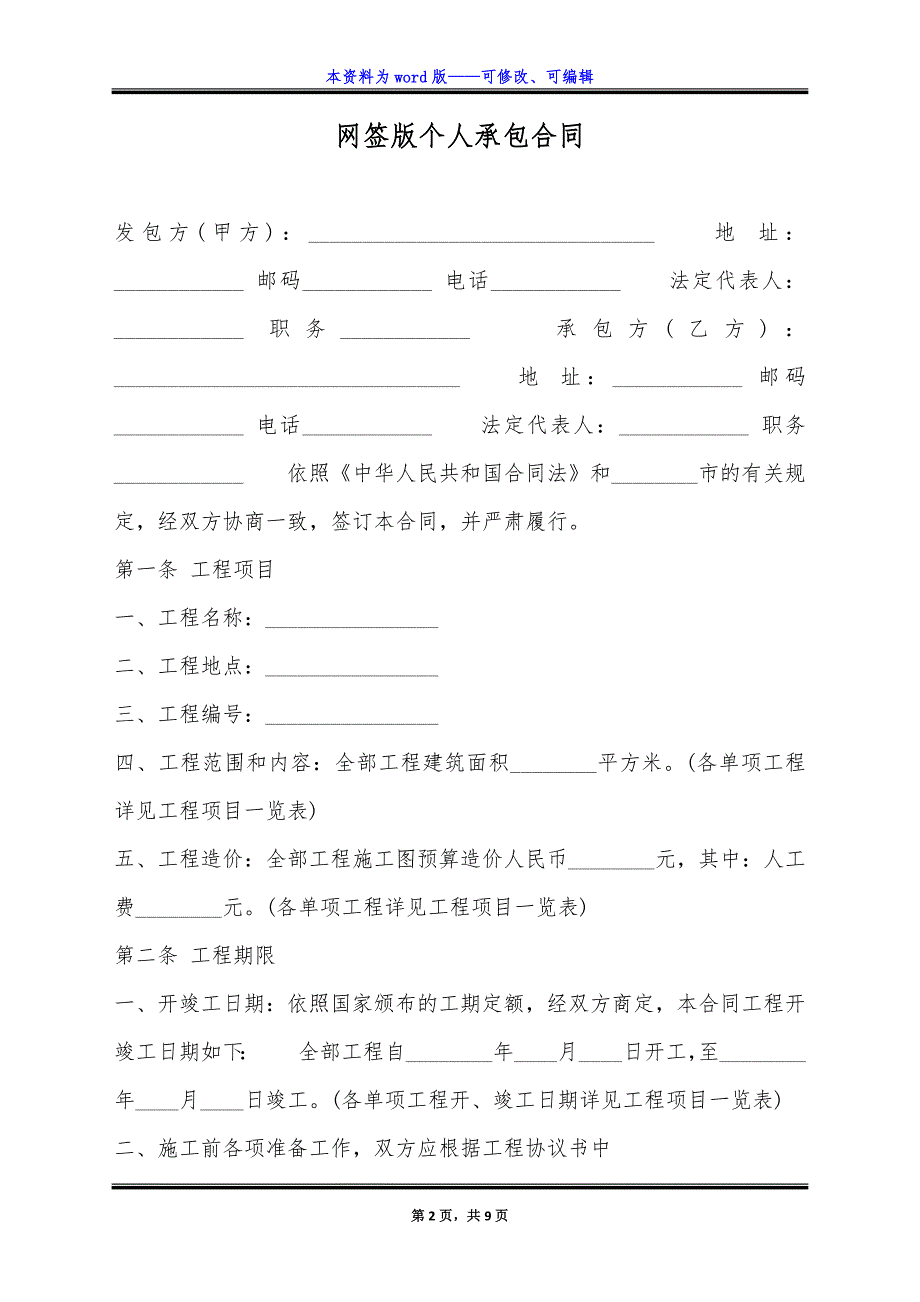 本资料为 word 版——可修改、可编辑
网签版个人承包合同
发包方(甲方)：________________________________ 地 址：
____________ 邮码____________ 电话____________ 法定代表人：
____________ 职务____________ 承包方(乙方)：
________________________________ 地 址：____________ 邮码
____________ 电话____________ 法定代表人：____________ 职务
____________ 依照《中华人民共和国合同法》和________市的有关规
定，经双方协商一致，签订本合同，并严肃履行。
第一条 工程项目
一、工程名称：________________
二、工程地点：________________
三、工程编号：________________
四、工程范围和内容：全部工程建筑面积________平方米。(各单项工程
详见工程项目一览表)
五、工程造价：全部工程施工图预算造价人民币________元，其中：人工
费________元。(各单项工程详见工程项目一览表)
第二条 工程期限
一、开竣工日期：依照国家颁布的工期定额，经双方商定，本合同工程开
竣工日期如下： 全部工程自________年____月____日开工，至________
年____月____日竣工。(各单项工程开、竣工日期详见工程项目一览表)
二、施工前各项准备工作，双方应根据工程协议书中
第 2 页，共 9 页